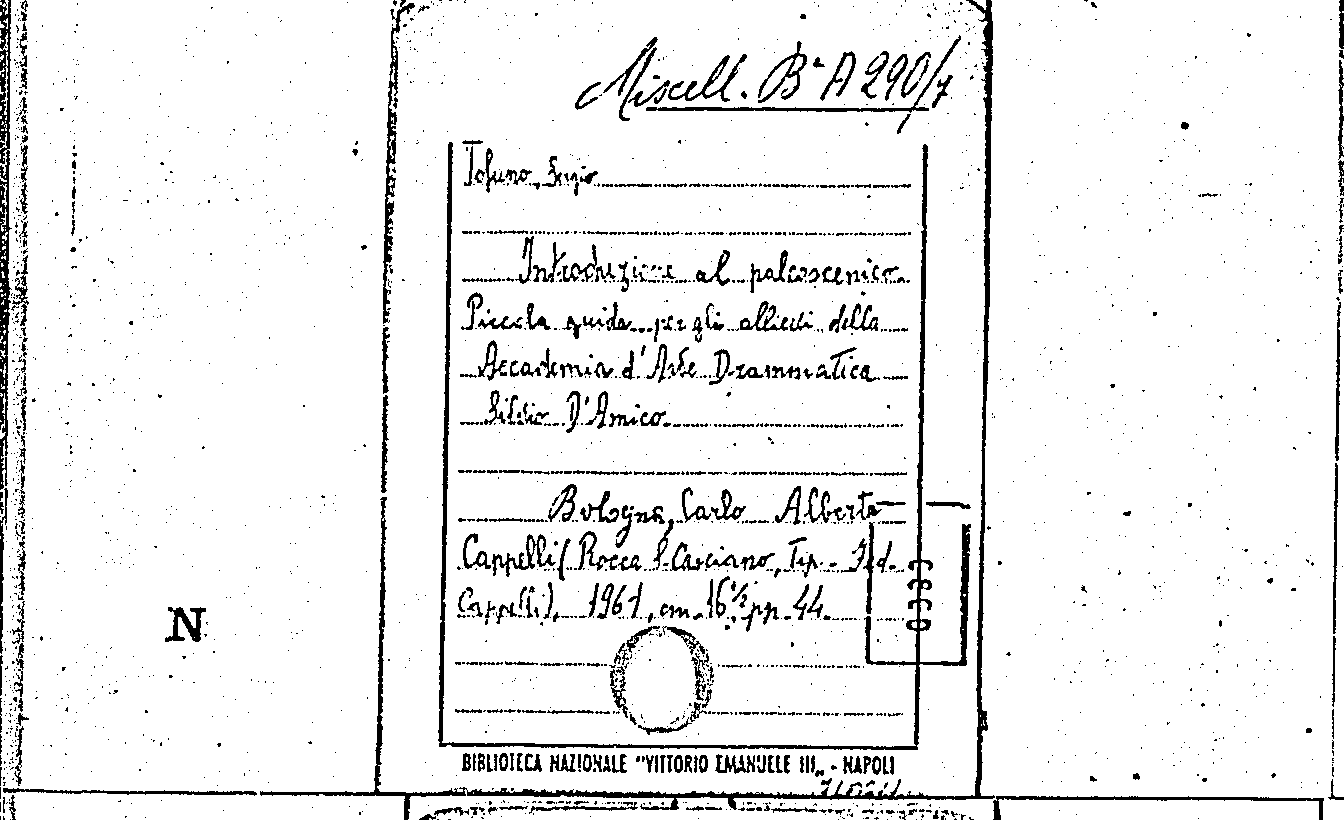 Miscell. Bª A 290/7
Tofano, Sergio
Introduzione al palcoscenico.
Piccola guida per gli allievi della
Accademia d'Arte Drammatica
Silvio D'Amico.
Bologna, Carlo Alberto
Cappelli (Rocca S. Casciano, Tip. Fed.
Cappelli), 1961, cm. 16½ pp. 44.
N
BIBLIOTECA NAZIONALE "VITTORIO EMANUELE III„ - NAPOLI